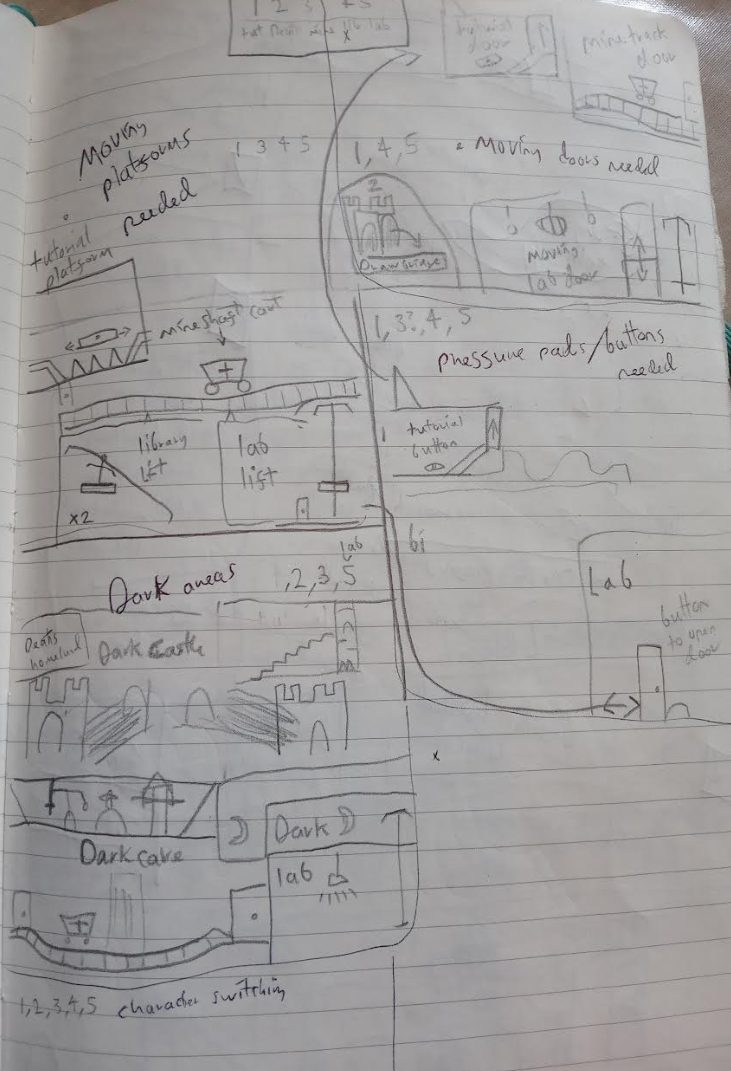 1 2 3 4 5
tut
mine lib lab
x
tutorial
door
mine track
door
Moving
platforms
needed
1 3 4 5
1, 4, 5
• Moving doors needed
2
Drawbridge
moving
lab door
tutorial
platform
mineshaft cart
1, 3?, 4, 5
pressure pads/buttons
needed
tutorial
button
library
lift
x2
lab
lift
Dark areas
lab
,2,3,5
Lab
button
to open
door
Deaths
homeland
Dark Castle
x
Dark cave
D
Dark D
lab
1,2,3,4,5 character switching